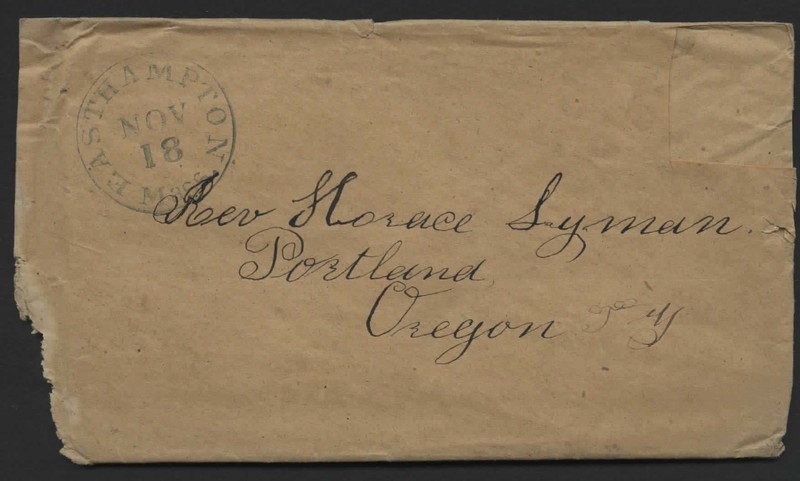 EASTHAMPTON Mass
NOV
18
Rev Horace Lyman.
Portland
Oregon